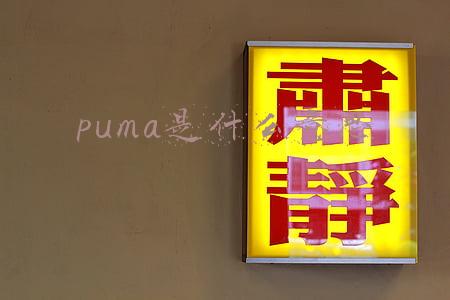 puma是什么
肅
靜